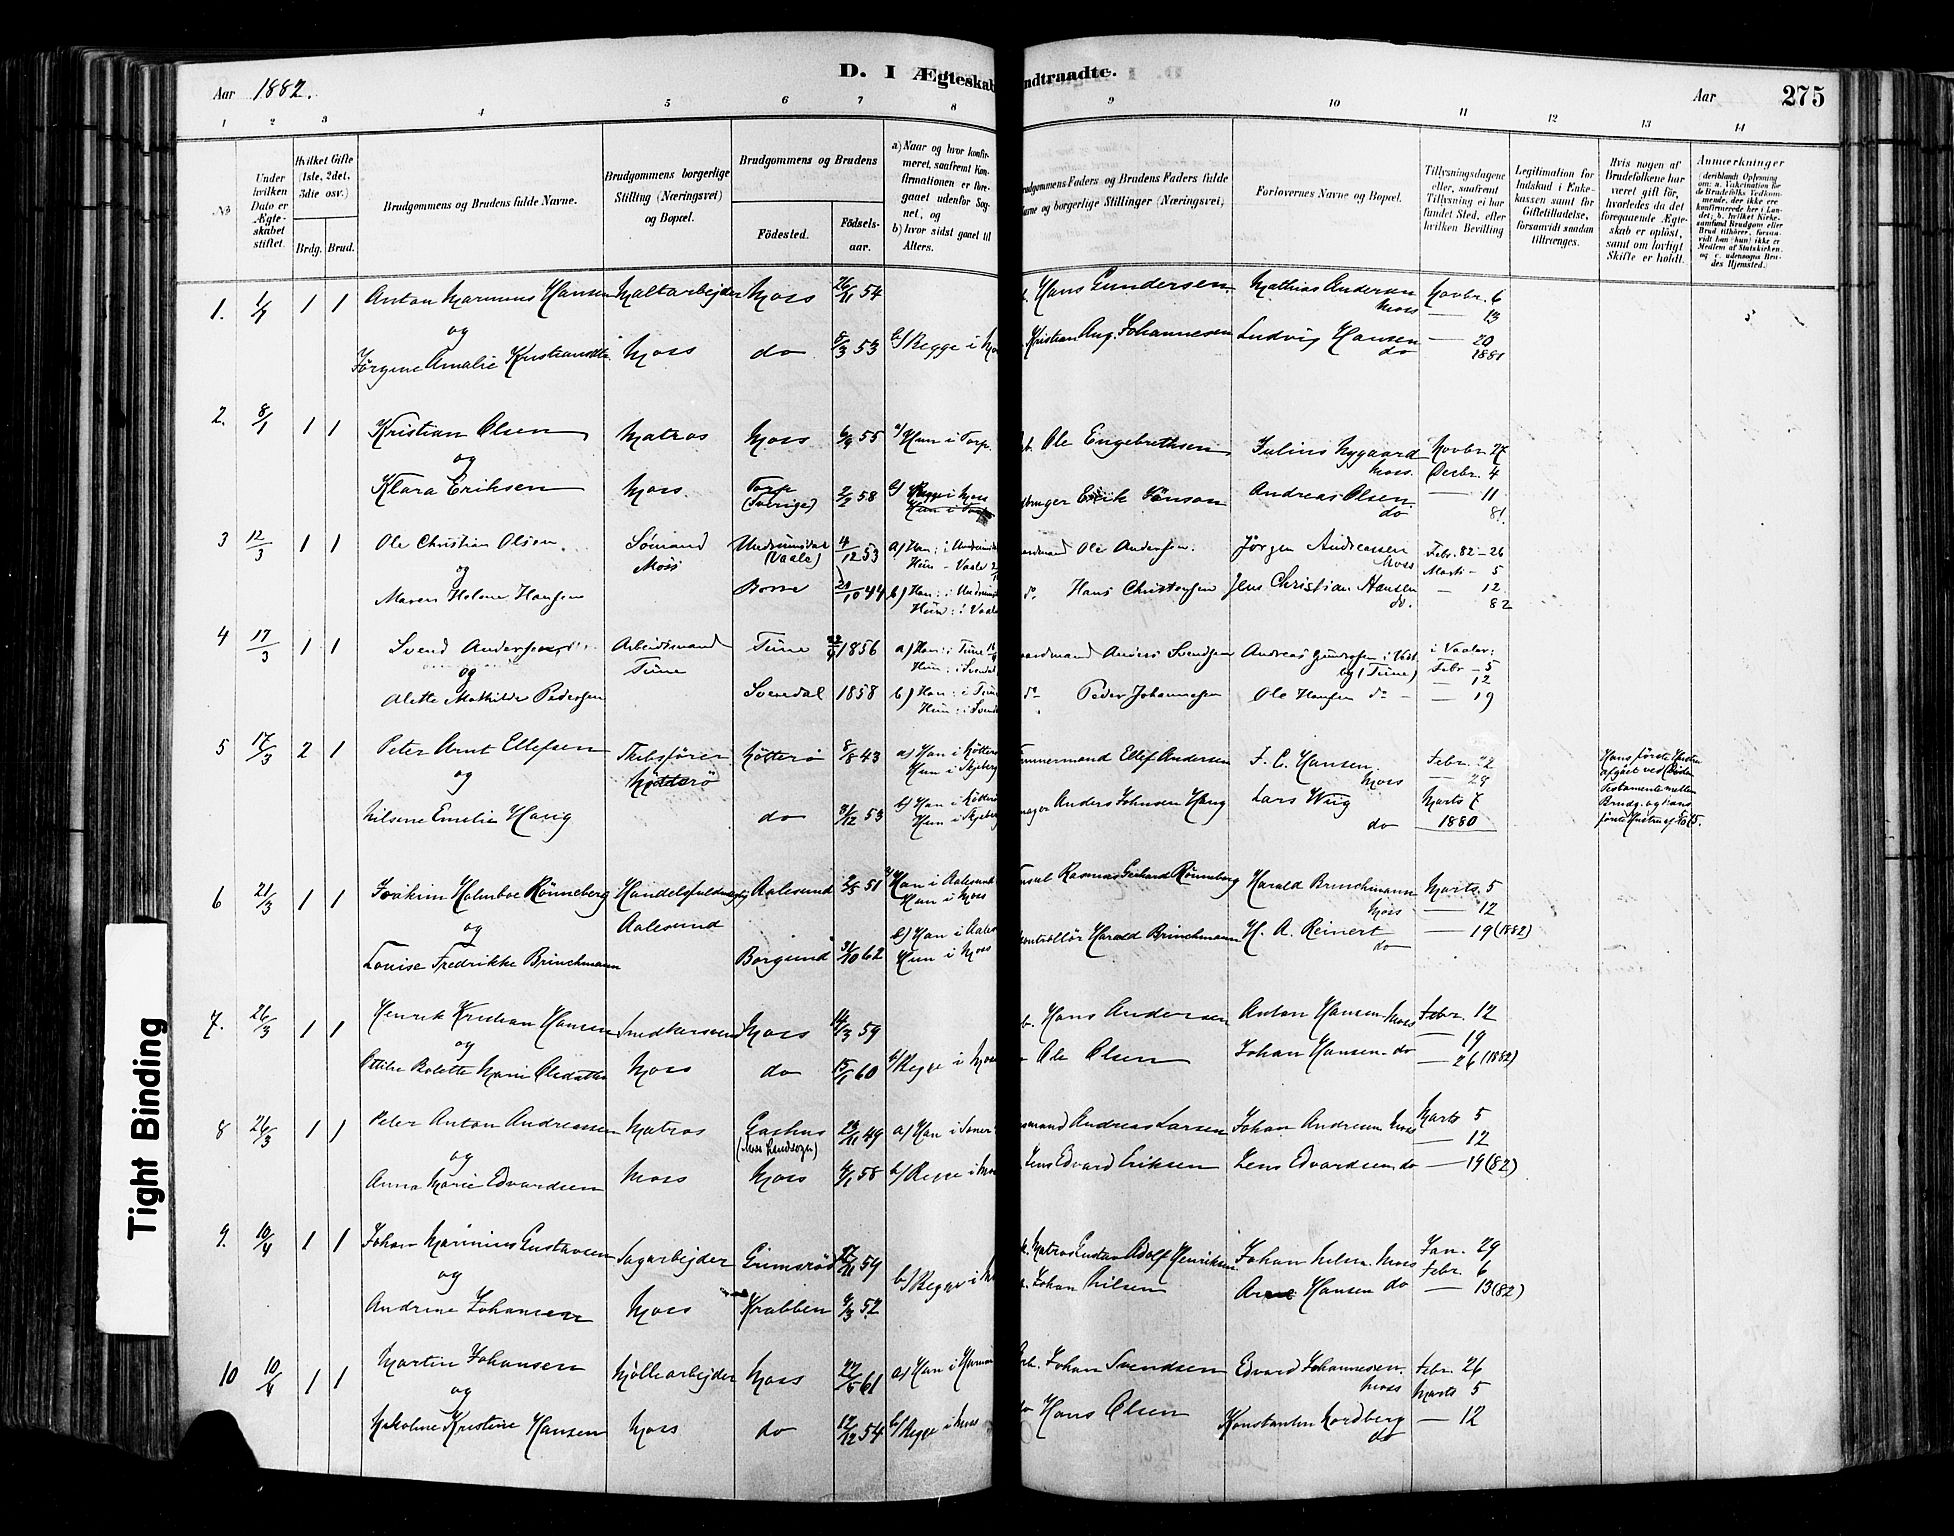 D. I Ægteskab
ndtraadte.
Aar 1882.
Aar 275
1 2 3 4 5 6 7 8
9 10 11 12 13 14
No
Under hvilken Dato er Ægteskabet stiftet.
Hvilket Gifte (1ste, 2det, 3die osv.)
Brdg. Brud.
Brudgommens og Brudens fulde Navne.
Brudgommens borgerlige Stilling (Næringsvei) og Bopæl.
Brudgommens og Brudens
Fødested. Fødselsaar.
a) Naar og hvor konfirmeret, saafremt Konfirmationen er foregaaet udenfor Sognet, og
b) hvor sidst gaaet til Alters.
udgommens Faders og Brudens Faders fulde
avne og borgerlige Stillinger (Næringsvei)
Forlovernes Navne og Bopæl.
Tillysningsdagene eller, saafremt Tillysning ei har fundet Sted, efter hvilken Bevilling
Legitimation for Indskud i Enkekassen samt for Giftetilladelse, forsaavidt saadan tiltrænges.
Hvis nogen af Brudefolkene har været gift før, hvorledes da det foregaaende Ægteskab er opløst, samt om lovligt Skifte er holdt.
Anmærkninger
1. 1/1 1 1 Anton Marinius Hansen Maltarbejder Moss 26/11 54 Hans Gundersen. Mathias Andersen Novbr. 6
og Moss — 13
Jørgine Amalie Kristiansdtr Moss do 8/3 53 b/ Begge i Mo Kristian Aug. Johannesen Ludvig Hansen — 20
do 1881
2. 8/1 1 1 Kristian Olsen Matros Moss 6/9 55 a/ Hun i Torp. Ole Engebrethsen Julius Nygaard Novbr. 27
og Moss. Decbr. 4
Klara Eriksen Moss. Torp (Sverige) 2/2 58 b/ Begge i Moss Erik Jonson Andreas Olsen — 11
Hun i Torp do 81.
3 12/3 1 1 Ole Christian Olsen Sømand Undrumsdal (Vaale) 4/12 53 a/ Han: i Undrumsd aardmand Ole Andersen. Jørgen Andreassen Febr. 82 - 26
og Moss Hun - Vaale Moss Marts - 5
Maren Helene Hansen Borre 29/10 44 b/ Han: i Undrums do. Hans Christophersen Jens Christian Hansen — 12
Hun: i Vaale do. 82
4 17/3 1 1 Svend Andersen Arbeidsmand Tune 1856 a) Han: i Tune aardmand Anders Svendsen Andreas Gundersen i Vaaler:
og Tune Hun: i Svendal (Tune) Febr - 5
— 12
Alette Mathilde Pedersen Svendal 1858 b) Han: i Tune do Peder Johannesen Ole Hansen do — 19
Hun: i Svend
5 17/3 2 1 Peter Arnt Ellefsen Skibsfører Nøtterø 8/8 43 a) Han i Nøtterø ømmermand Ellef Andersen F. C. Hansen. Febr. 22
og Nøtterø Hun i Skjeberg Moss — 29
Nilsine Emelie Haug do 8/12 53 b) Han i Nøtterø Anders Johnsen Haug Lars Wiig Marts 7
Hun i Skjeberg do 1880
Hans første Hustru
afgået ved Døden
Testamente mellem
Brudg. og hans
første Hustru
6 21/3 1 1 Joakim Holmboe Rønneberg Handelsfuldmægtig Aalesund 2/5 51 a/ Han i Aalesund onsul Rasmus Gerhard Rønneberg Harald Brinchmann Marts. 5
og Aalesund Hun i Moss Moss — 12
b/ Han i Aales ontrollør Harald Brinchmann H. A. Reinert — 19 (1882)
Louise Fredrikke Brinchmann Borgund 31/10 62 Hun i Moss do
7. 26/3 1 1 Henrik Kristian Hansen Snedkersvend Moss 14/3 59 Hans Andersen Anton Hansen Moss Febr. 12
og — 19
Ottilie Bolette Marie Olsdatter Moss do 15/1 60 b/ Begge i Moss Ole Olsen Johan Hansen do — 26 (1882)
8 26/3 1 1 Peter Anton Andreassen Matros Gashus (Moss Landsogn) 23/11 49 a/ Han i Soner smand Andreas Larsen Johan Andresen Moss Marts 5
og — 12
Anna Marie Edvardsen Moss Moss 6/1 58 b/ Begge i Moss Jens Edvard Eriksen Jens Edvardsen do — 19 (82)
9. 10/4 1 1 Johan Marinius Gustavsen Sagarbejder Grimsrød 59 Matros Gustav Adolf Henriksen Johan Nilsen Moss Jan. 29
og b/ Begge i Mo Febr. 6
Andrine Johansen Moss Krabben 9/3 52 Johan Nilsen Arne Hansen do — 13 (82)
10 10/4 1 1 Martin Johansen Møllearbejder Moss 22/5 61 a/ Han i Johan Svendsen Edvard Johannesen. Febr. 26
og Moss Marts 5
Jakobine Kristine Hansen Moss do 12/12 54 b/ Begge i Moss Hans Olsen Konstantin Nordberg — 12
do
Tight Binding